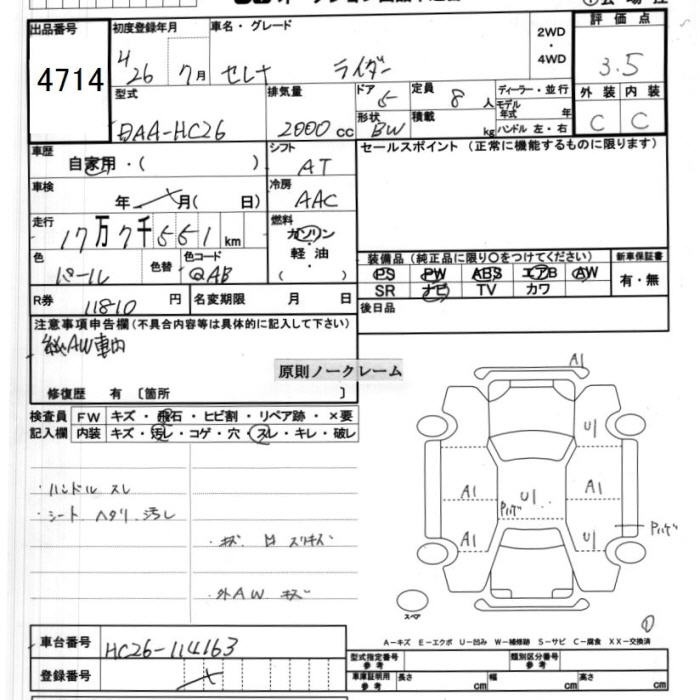 出品番号 初度登録年月 車名・グレード 2WD・4WD 評価点
4714 H26 7月 セレナ ライダー 3.5
型式 排気量 ドア 5 定員 8人 ディーラー・並行 外装 内装
DAA-HC26 2000cc 形状 BW 積載 kg モデル年式 年 ハンドル 左・右 C C
車歴 自家用・( ) シフト AT セールスポイント (正常に機能するものに限ります)
車検 年 月( 日) 冷房 AAC
走行 17万7千551km 燃料 ガソリン 軽油・( )
色 パール 色替 色コード QAB 装備品 (純正品に限り○をつけてください) 新車保証書
PS PW ABS エアB AW 有・無
SR ナビ TV カワ
R券 11810円 名変期限 月 日 後日品
注意事項申告欄(不具合内容等は具体的に記入して下さい)
AW車内
原則ノークレーム
修復歴 有 〔箇所 〕
検査員 FW キズ・飛石・ヒビ割・リペア跡・×要
記入欄 内装 キズ・汚レ・コゲ・穴・スレ・キレ・破レ
・ハンドル スレ
・シート ヘタリ 汚レ
・キズ 凹 スリキズ
・外AW キズ
A1
U1
A1 U1 A1
Pハゲ
A1 U1 Pハゲ
スペア
①
A-キズ E-エクボ U-凹み W-補修跡 S-サビ C-腐食 XX-交換済
車台番号 HC26-114163 型式指定番号 参考 類別区分番号 参考
登録番号 車庫証明用 参考 長さ cm 幅 cm 高さ cm